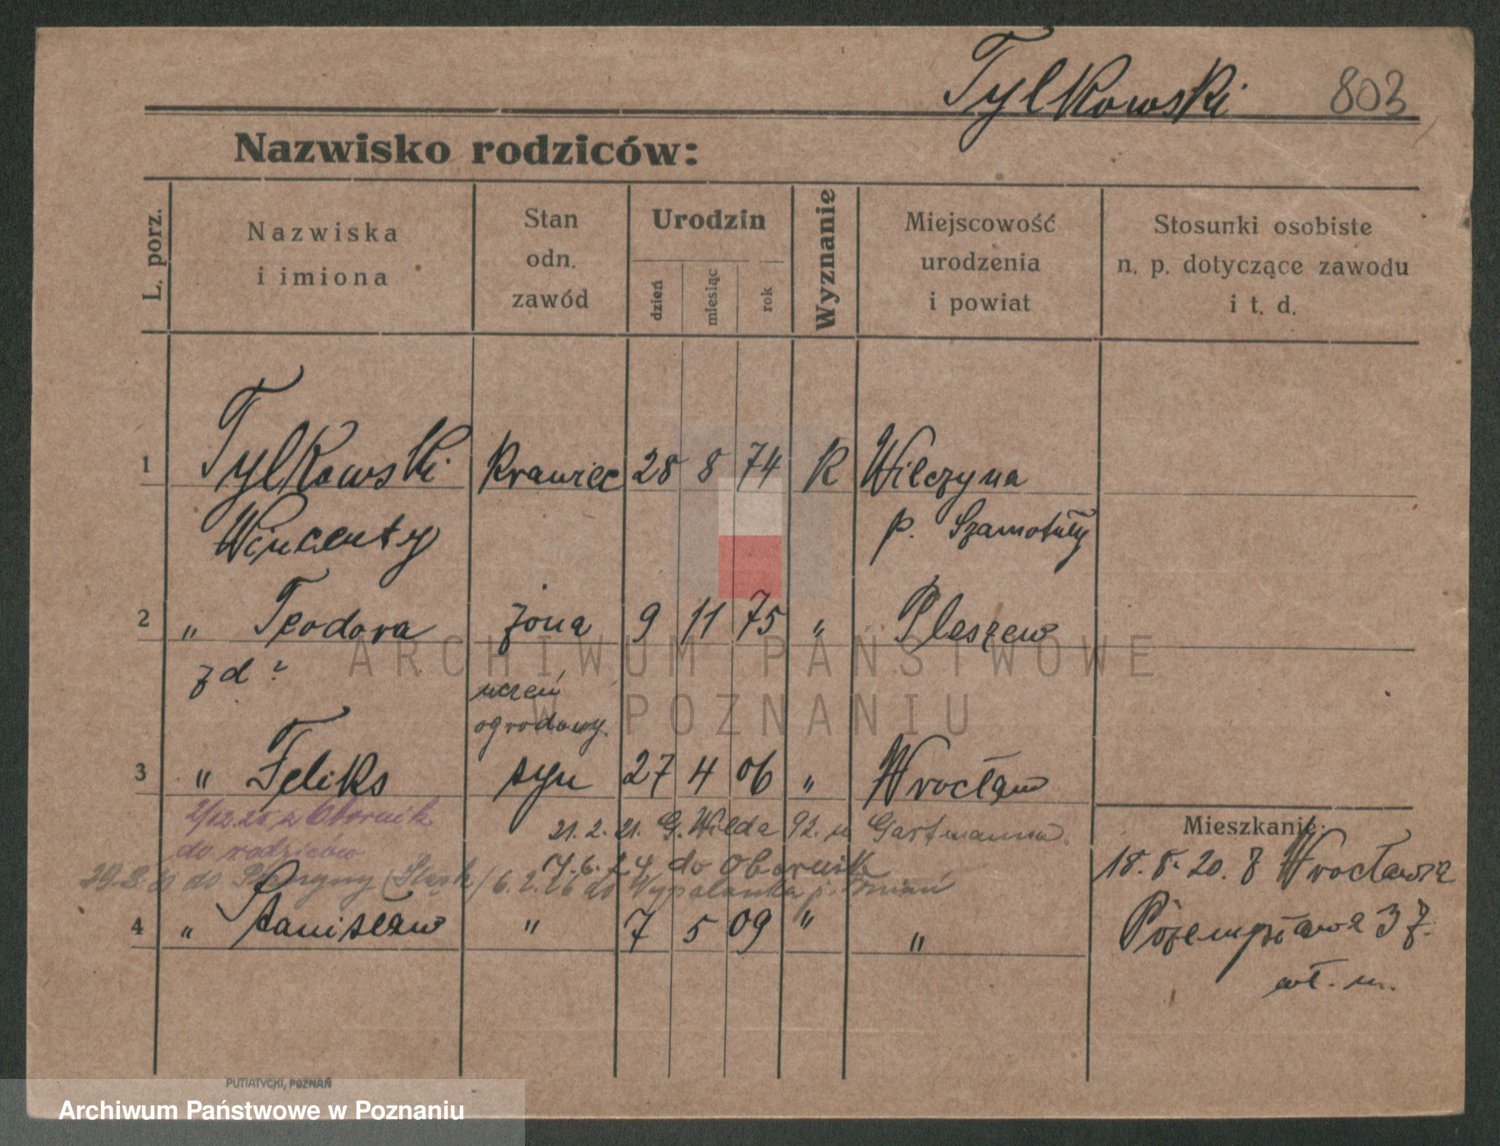 Tylkowski 803
Nazwisko rodziców:
L. porz.
Nazwiska
i imiona
Stan
odn.
zawód
Urodzin
dzień
miesiąc
rok
Wyznanie
Miejscowość
urodzenia
i powiat
Stosunki osobiste
n. p. dotyczące zawodu
i t. d.
1 Tylkowski krawiec 28 8 74 K Wilczyna
Wincenty p. Szamotuły
2 „ Teodora żona 9 11 75 „ Pleszew
z d.
uczeń
ogrodowy.
3 „ Feliks syn 27 4 06 „ Wrocław
2/12.25 z Obornik 21.2.21. G. Wilda 92. u Gartmanna.
do rodziców 7.6.24 do Obornik
do 6.2.26 do
4 „ Stanisław „ 7 5 09 „ „
Mieszkanie:
18.8.20. z Wrocławia
37.
wł. m.
PUTIATYCKI, POZNAŃ
ARCHIWUM PAŃSTWOWE
W POZNANIU
Archiwum Państwowe w Poznaniu